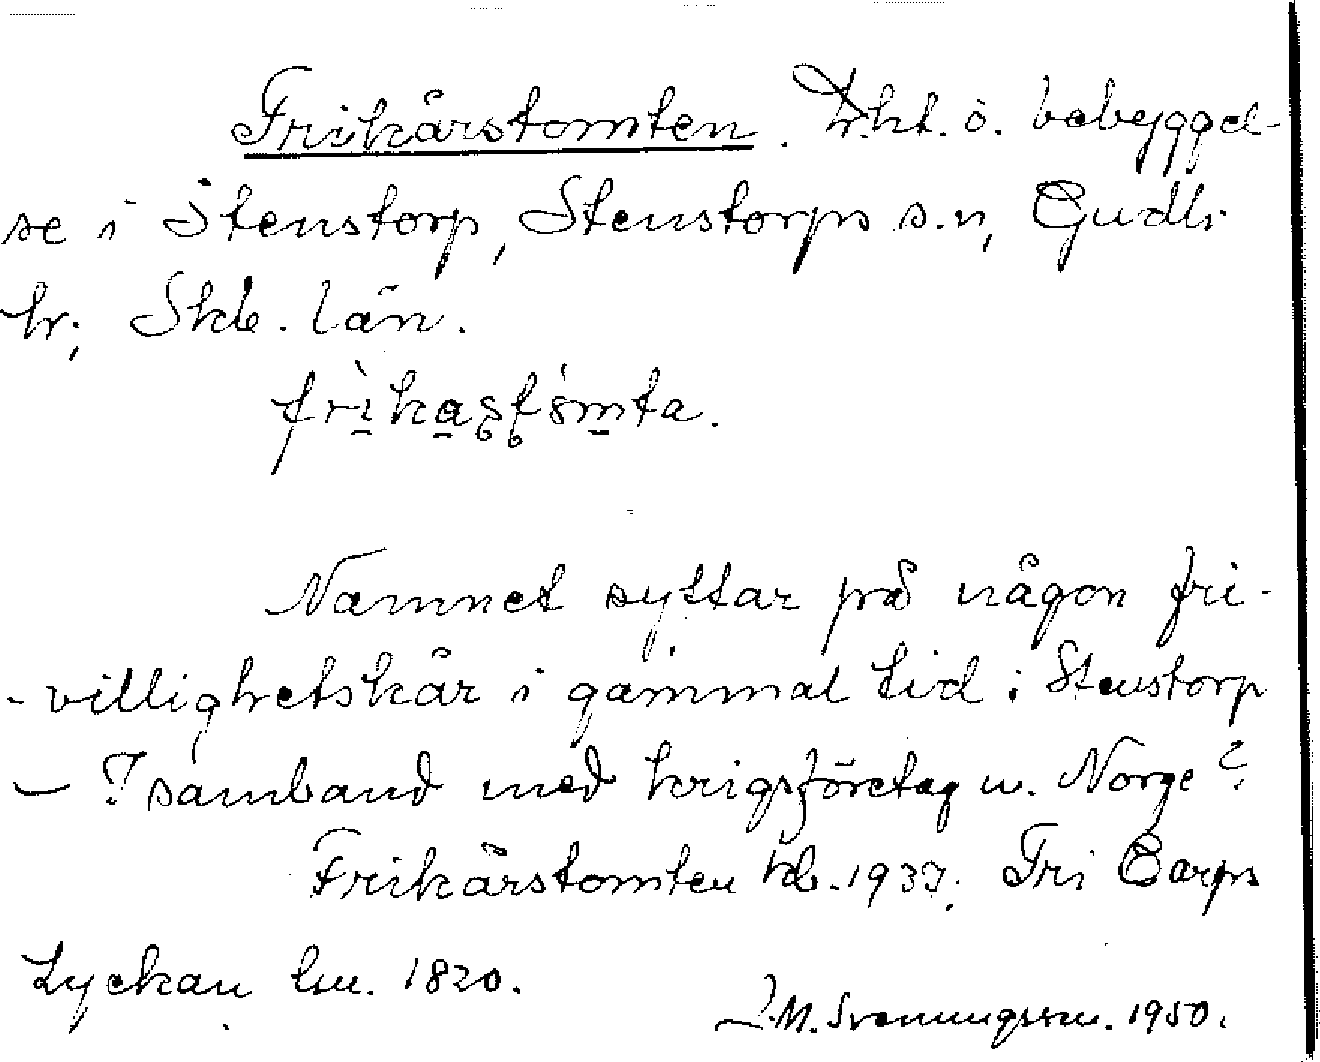 Frikårstomten. Lht. o. bebyggel-
se i Stenstorp, Stenstorps s:n, Gudh:
hr; Skb. län.
Namnet syftar på någon fri-
-villighetskår i gammal tid i Stenstorp
— I samband med krigsföretag m. Norge?
Frikårstomten kb. 1937. Fri Carps
Lyckan lm. 1820.
L.M. Svenungsson. 1950.